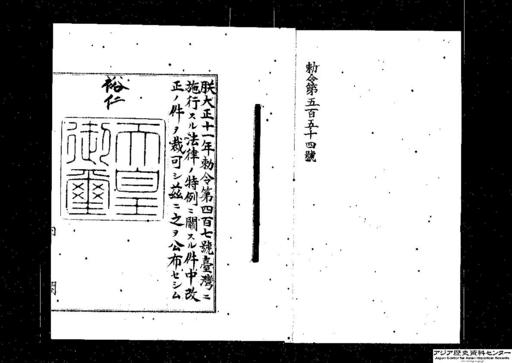 勅令第五百五十四號
朕大正十一年勅令第四百七號臺灣ニ
施行スル法律ノ特例ニ關スル件中改
正ノ件ヲ裁可シ茲ニ之ヲ公布セシム
裕仁
天皇
御璽
内閣
アジア歴史資料センター
Japan Center for Asian Historical Records